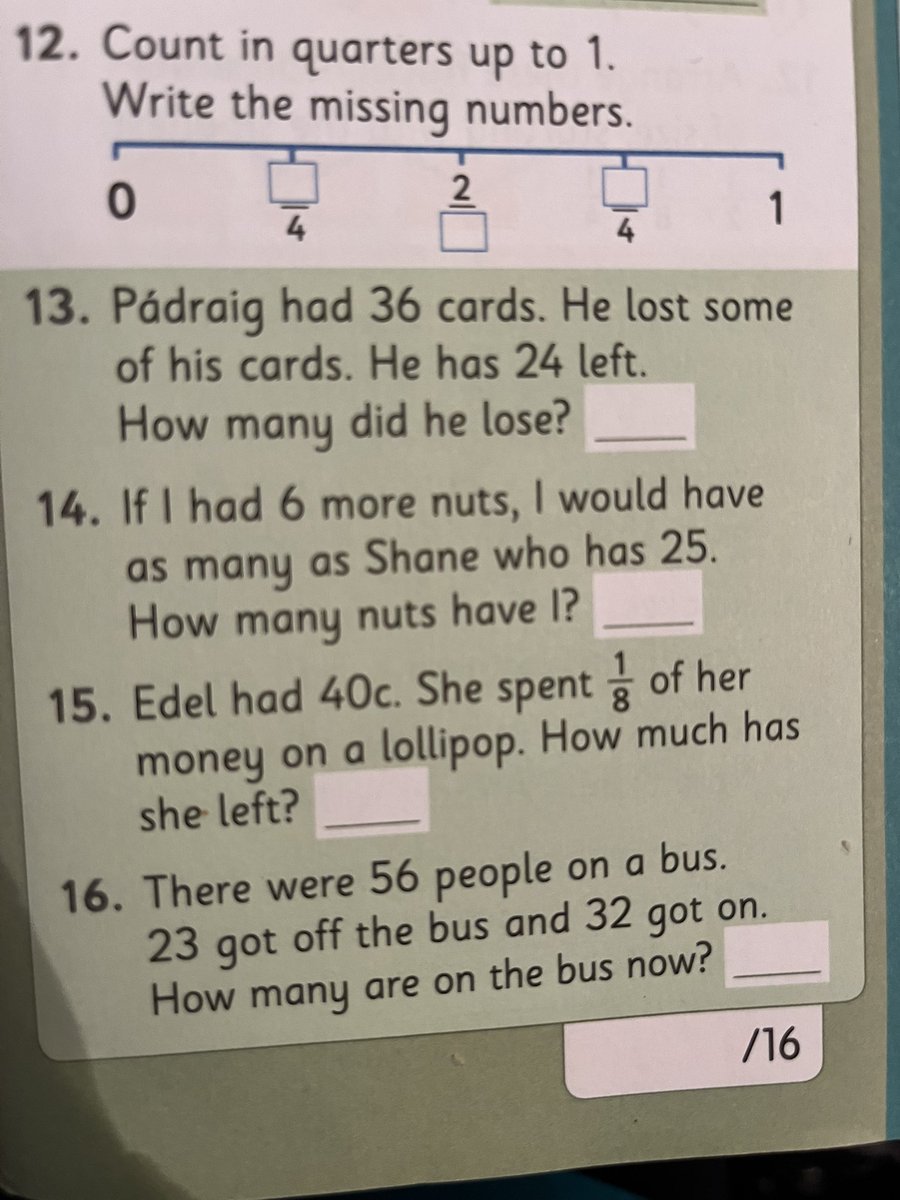 12. Count in quarters up to 1.
Write the missing numbers.
0 □/4 2/□ □/4 1
13. Pádraig had 36 cards. He lost some
of his cards. He has 24 left.
How many did he lose? ____
14. If I had 6 more nuts, I would have
as many as Shane who has 25.
How many nuts have I? ____
15. Edel had 40c. She spent 1/8 of her
money on a lollipop. How much has
she left? ____
16. There were 56 people on a bus.
23 got off the bus and 32 got on.
How many are on the bus now? ____
/16